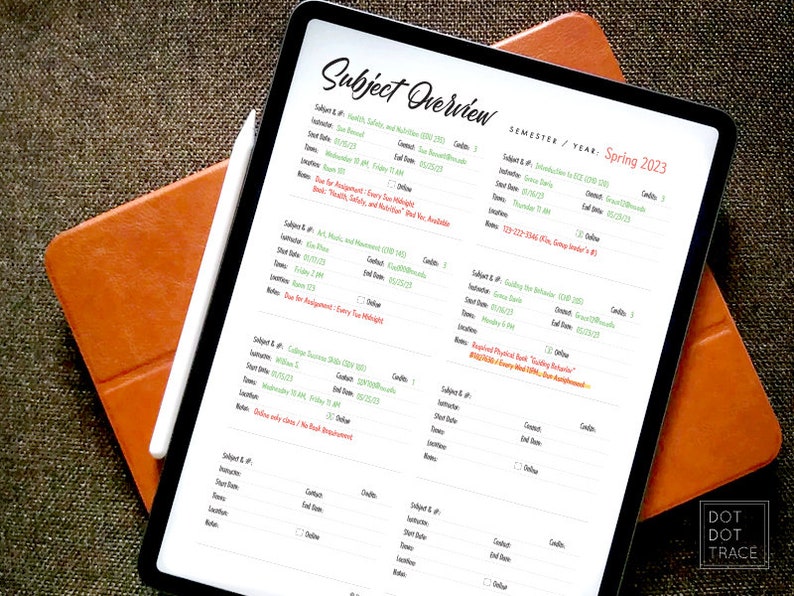 Subject Overview
SEMESTER / YEAR: Spring 2023
Subject & #: Health, Safety, and Nutrition (EDU 235)
Instructor: Sue Bennet Credits: 3
Start Date: 01/15/23 Contact: Sue.Bennet@nsu.edu
Times: Wednesday 10 AM, Friday 11 AM End Date: 05/25/23
Location: Room 101 Online
Notes: Due for Assignment : Every Sun Midnight
Book: "Health, Safety, and Nutrition" iPad Ver. Available
Subject & #: Introduction to ECE (CHD 120)
Instructor: Grace Davis Credits: 3
Start Date: 01/16/23 Contact: Grace12@nsu.edu
Times: Thursday 11 AM End Date: 05/23/23
Location:
Online
Notes: 123-222-3346 (Kim, Group leader's #)
Subject & #: Art, Music, and Movement (CHD 145)
Instructor: Kim Rhee Credits: 3
Start Date: 01/17/23 Contact: Kim000@nsu.edu
Times: Friday 2 PM End Date: 05/25/23
Location: Room 123 Online
Notes: Due for Assignment : Every Tue Midnight
Subject & #: Guiding the Behavior (CHD 205)
Instructor: Grace Davis Credits: 3
Start Date: 01/16/23 Contact: Grace12@nsu.edu
Times: Monday 6 PM End Date: 05/23/23
Location:
Online
Notes: Required Physical Book "Guiding Behavior"
/ Every Wed 11PM.. Due Assignment
Subject & #: College Success Skills (SDV 100)
Instructor: William S. Credits: 1
Start Date: 01/15/23 Contact: SDV100@nsu.edu
Times: Wednesday 10 AM, Friday 11 AM End Date: 05/25/23
Location: Online
Notes: Online only class / No Book Requirement
Subject & #:
Instructor: Credits:
Start Date: Contact:
Times: End Date:
Location:
Notes: Online
Subject & #:
Instructor:
Start Date: Contact: Credits:
Times: End Date:
Location:
Notes: Online
Subject & #:
Instructor:
Start Date: Contact: Credits:
Times: End Date:
Location:
Notes: Online
DOT
DOT
TRACE